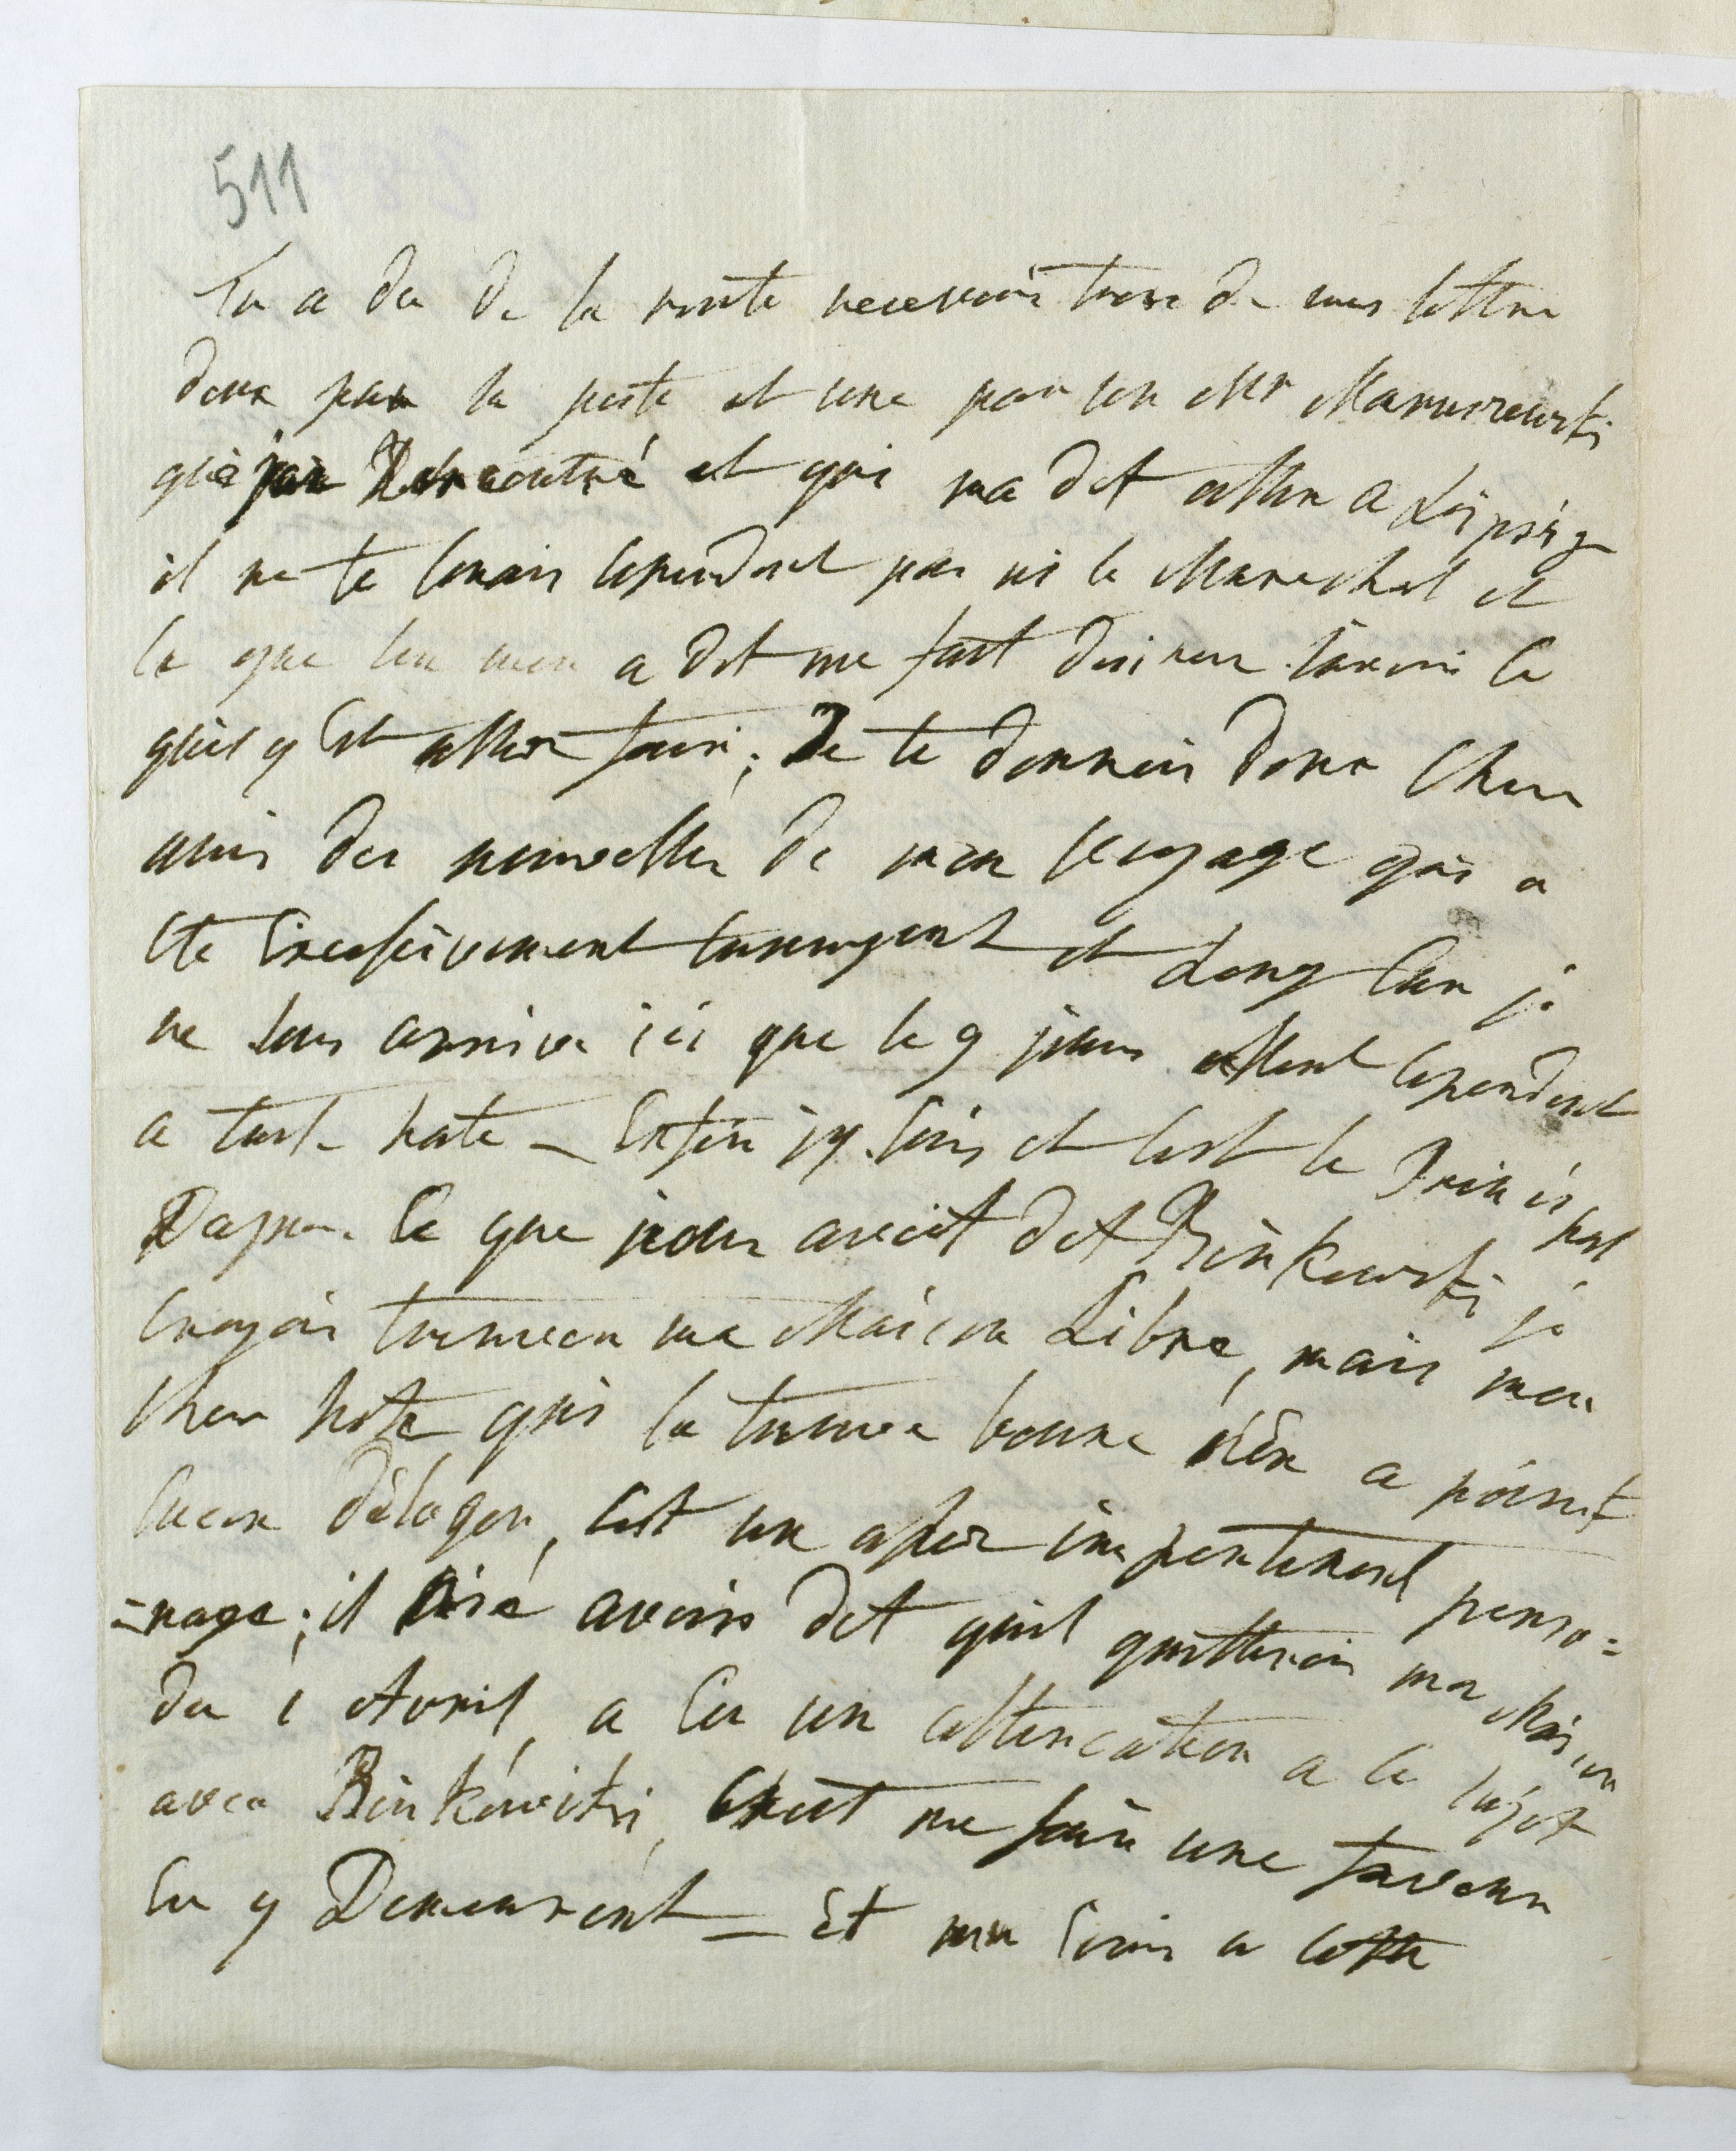 511
Tu a du de la route recevoir trois de mes lettre
deux par la poste et une par un Mr
que j'ai Rencontré et qui ma dit aller a Leipsig
il ne te conais cependent pas ni le Marechal et
ce que l'on men a dit me fait desirer savoir ce
qu'il y est aller faire; Je te donnois donc cher
ami des nouvelles de mon voyage qui a
ete excessivement et Long car je
ne suis arrive ici que le 9 jour allent cependent
a toute hate – Enfin j'y suis et cest le Principal
Dapre ce que nous avoit dit Binkowski je
croyois trouver ma Maison Libre, mais mon
cher hote qui la trouve bonne n'en a point
encore délogér, cest un assez impertinent perso=
=nage; il avoir dit quil quitterois ma Maison
du 1 Avril, a eu un altercation a ce sujet
avec Binkowski, croit me faire une faveur
en y Demeurent – Et me suis a cette